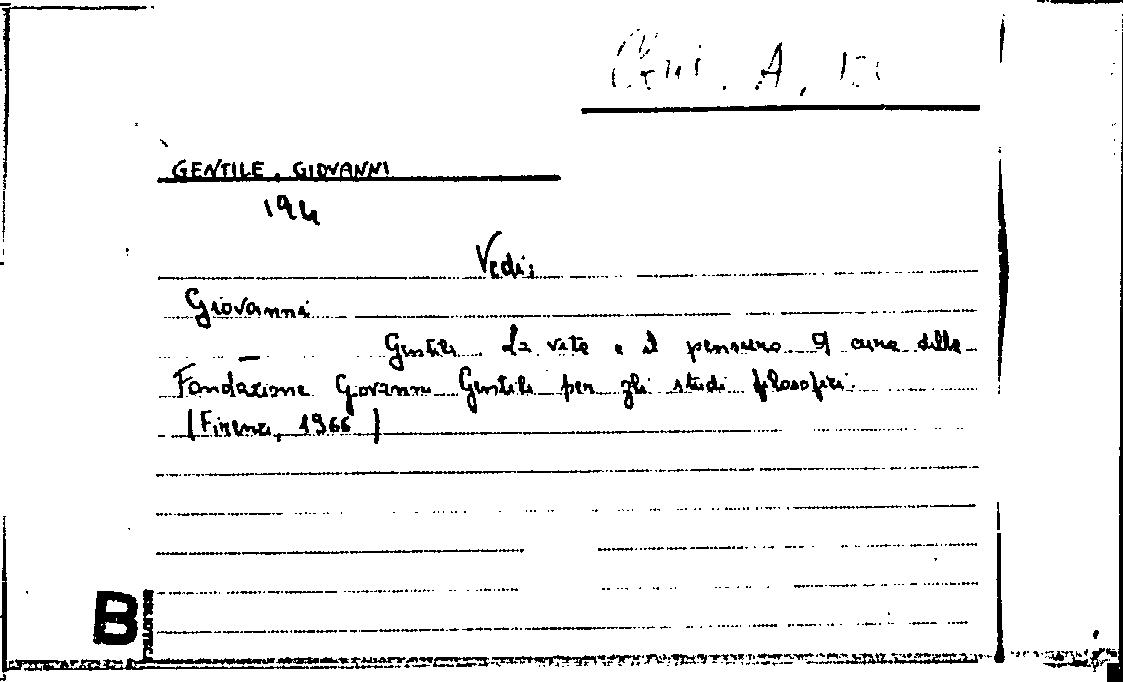 A.
GENTILE, GIOVANNI
194
Vedi:
Giovanni
Gentile La vita e il pensiero a cura della
Fondazione Giovanni Gentile per gli studi filosofici.
(Firenze, 1966)
B BIBLIOTEC